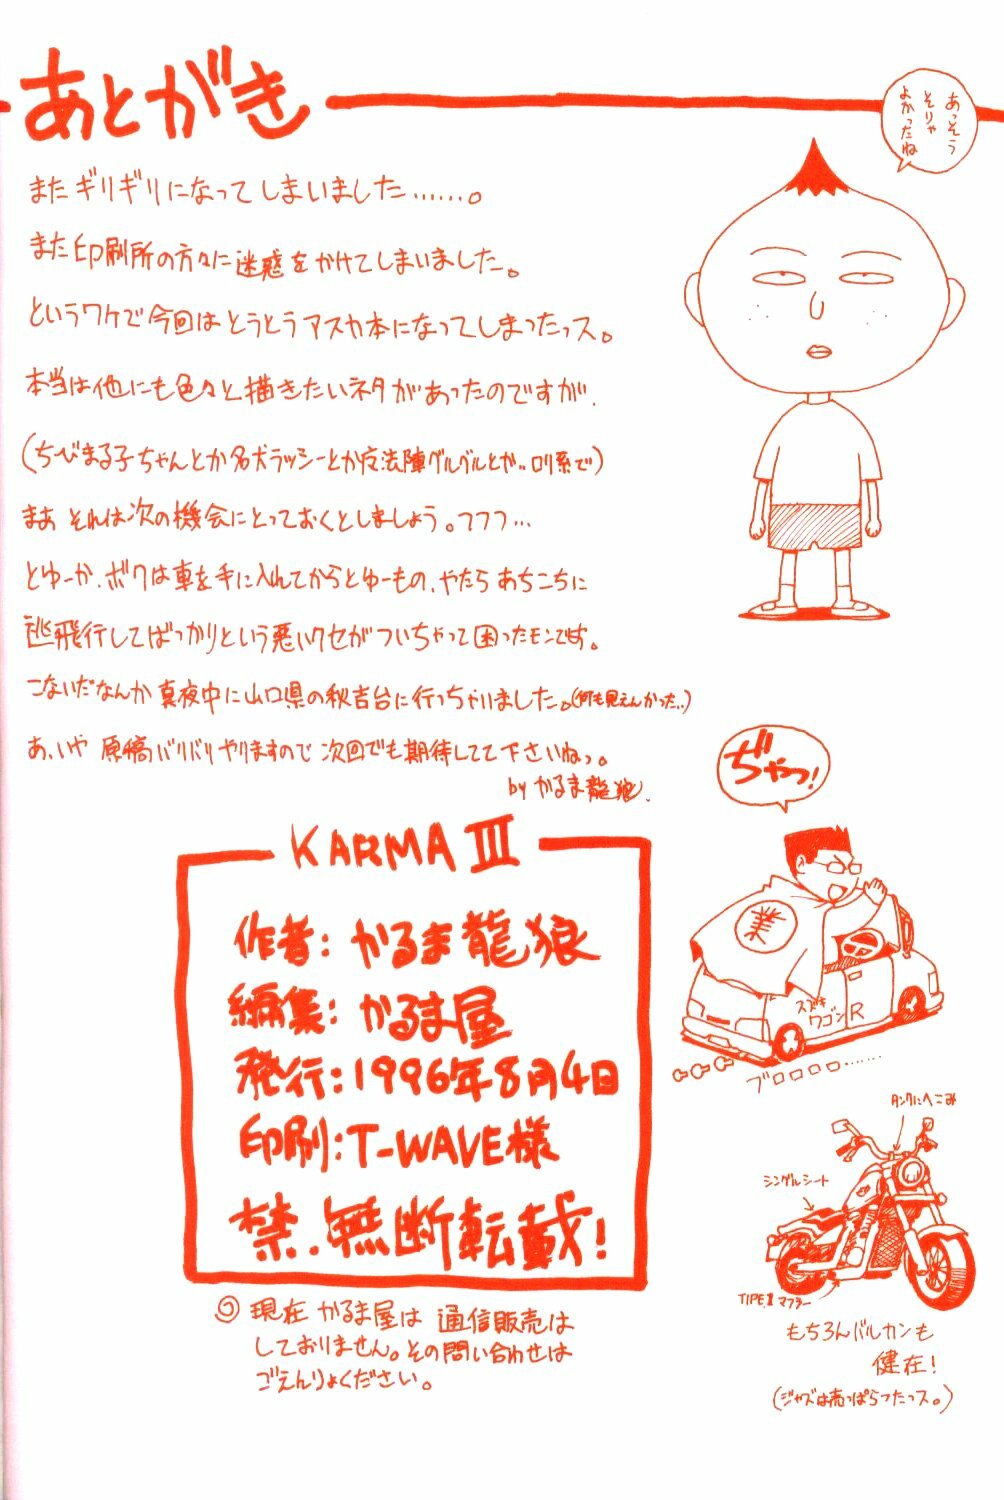 あとがき
あっそう
そりゃ
よかったね
またギリギリになってしまいました……。
また印刷所の方々に迷惑をかけてしまいました。
というワケで今回はとうとうアスカ本になってしまったっス。
本当は他にも色々と描きたいネタがあったのですが、
(ちびまる子ちゃんとか名犬ラッシーとか魔法陣グルグルとか‥ロリ系で)
まあ それは次の機会にとっておくとしましょう。フフフ…
とゆーか、ボクは車を手に入れてからとゆーもの、やたらあちこちに
逃飛行してばっかりという悪いクセがついちゃって困ったモンです。
こないだなんか真夜中に山口県の秋吉台に行っちゃりました。(何も見えんかった‥)
あ、いや 原稿バリバリやりますので 次回でも期待してて下さいねっ。
by かるま龍狼.
ぢゃっ!
業
スズキ
ワゴンR
ブロロロロ……
KARMA III
作者:かるま龍狼
編集:かるま屋
発行:1996年8月4日
印刷:T-WAVE様
禁.無断転載!
◎現在 かるま屋は 通信販売は
しておりません。その問い合わせは
ごえんりょください。
タンクにへこみ
シングルシート
TIPEⅡマフラー
もちろんバルカンも
健在!
(ジャズは売っぱらったっス。)